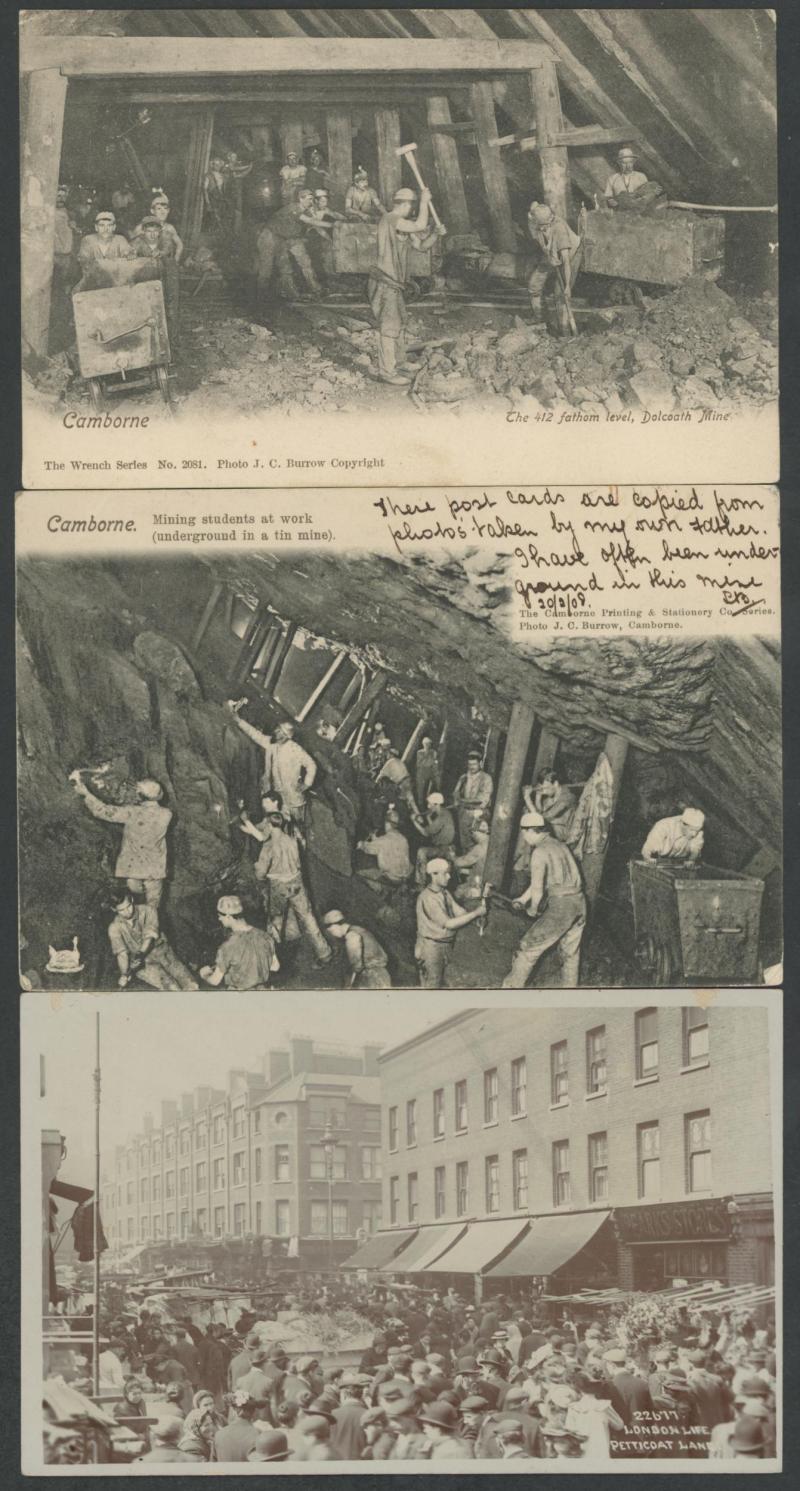 Camborne
The 412 fathom level, Dolcoath Mine
The Wrench Series No. 2081. Photo J. C. Burrow Copyright
Camborne. Mining students at work
(underground in a tin mine).
These post cards are copied from
photo's taken by my own father.
I have often been under-
ground in this mine
20/3/09.
The Camborne Printing & Stationery Co. Series.
Photo J. C. Burrow, Camborne.
22677.
LONDON LIFE.
PETTICOAT LANE